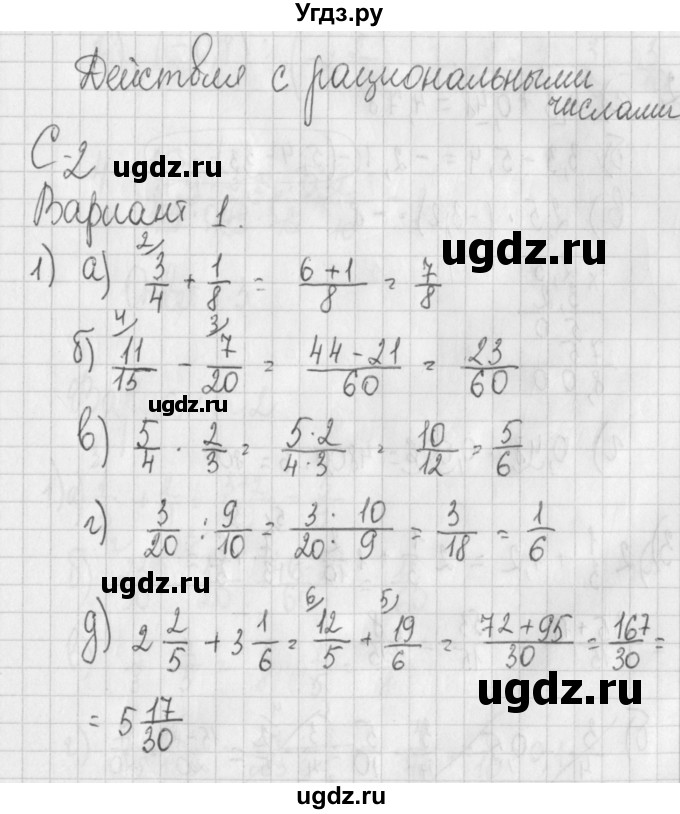 Угдз.ру
Действия с рациональными
числами
С-2
ugdz.ru
Вариант 1.
ugdz.ru
1) а) 3/4 2) + 1/8 = (6+1)/8 = 7/8
б) 11/15 4) - 7/20 3) = (44-21)/60 = 23/60
ugdz.ru
в) 5/4 · 2/3 = (5·2)/(4·3) = 10/12 = 5/6
г) 3/20 : 9/10 = (3·10)/(20·9) = 3/18 = 1/6
ugdz.ru
д) 2 2/5 + 3 1/6 = 12/5 6) + 19/6 5) = (72+95)/30 = 167/30 =
ugdz.ru
= 5 17/30
ugdz.ru